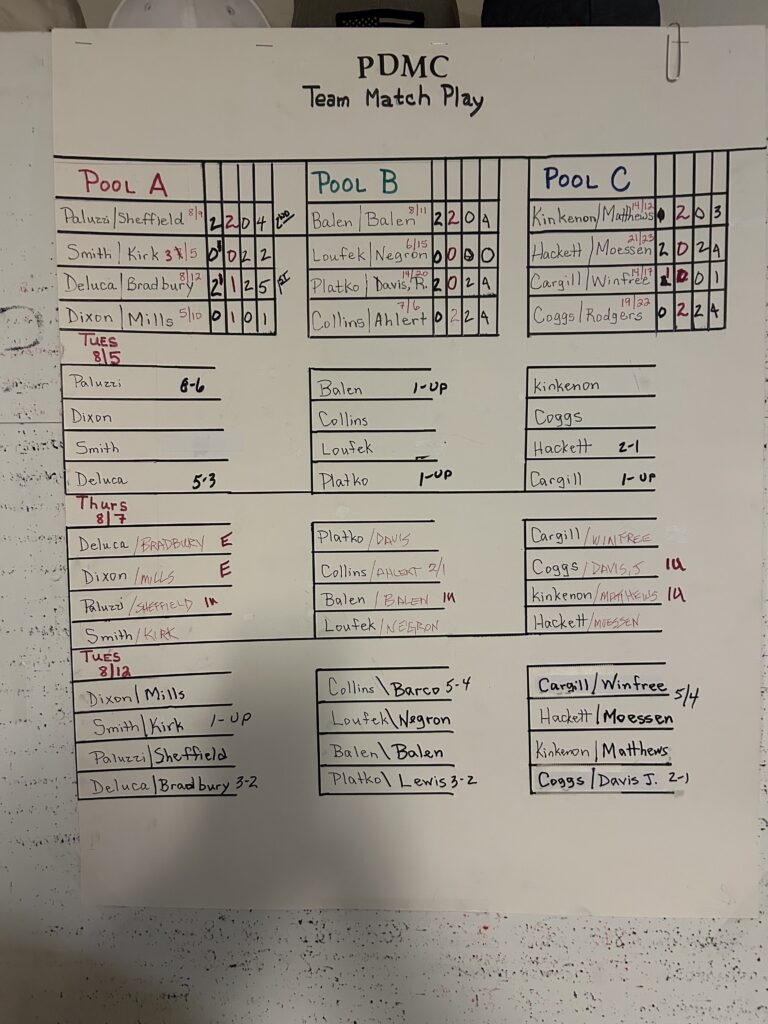 PDMC
Team Match Play
POOL A
Paluzzi/Sheffield 8/9 2 2 0 4 2ND
Smith/Kirk 3 5 0 0 2 2
Deluca/Bradbury 8/12 2 1 2 5 1ST
Dixon/Mills 5/10 0 1 0 1
POOL B
Balen/Balen 8/11 2 2 0 4
Loufek/Negron 6/15 0 0 0 0
Platko/Davis, R. 14/20 2 0 2 4
Collins/Ahlert 7/6 0 2 2 4
POOL C
Kinkenon/Matthews 14/12 2 0 3
Hackett/Moessen 21/23 2 0 2 4
Cargill/Winfree 14/17 0 0 1
Coggs/Rodgers 19/22 0 2 2 4
TUES
8/5
Paluzzi 8-6
Dixon
Smith
Deluca 5-3
Balen 1-UP
Collins
Loufek
Platko 1-UP
Kinkenon
Coggs
Hackett 2-1
Cargill 1-UP
Thurs
8/7
Deluca/BRADBURY E
Dixon/MILLS E
Paluzzi/SHEFFIELD 1U
Smith/KIRK
Platko/DAVIS
Collins/AHLERT 2/1
Balen/BALEN 1U
Loufek/NEGRON
Cargill/WINFREE
Coggs/DAVIS, J 1U
Kinkenon/MATTHEWS 1U
Hackett/MOESSEN
TUES
8/12
Dixon/Mills
Smith/Kirk 1-UP
Paluzzi/Sheffield
Deluca/Bradbury 3-2
Collins\Barco 5-4
Loufek\Negron
Balen\Balen
Platko\Lewis 3-2
Cargill/Winfree 5/4
Hackett/Moessen
Kinkenon/Matthews
Coggs/Davis J. 2-1